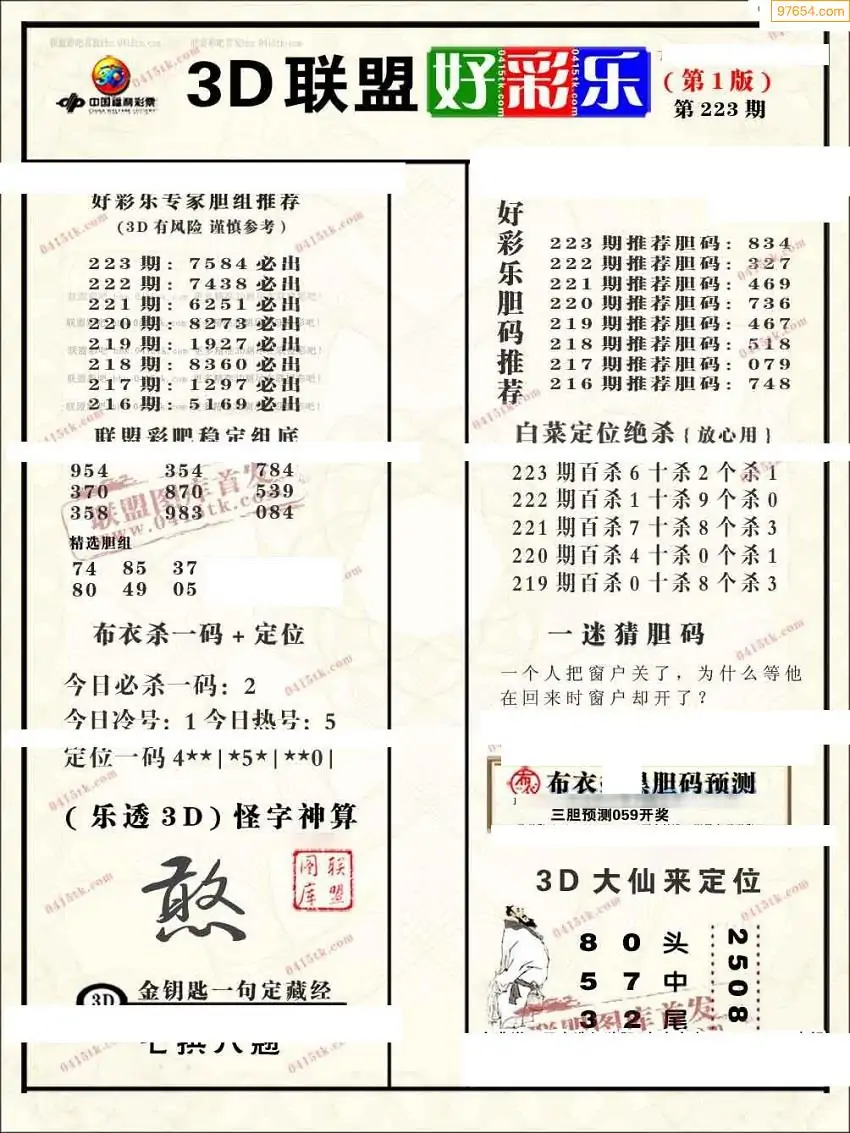 97654.com
中国福利彩票
CHINA WELFARE LOTTERY
3D联盟好彩乐
0415tk.com
(第1版)
第223期
好彩乐专家胆组推荐
(3D有风险 谨慎参考)
223期:7584必出
222期:7438必出
221期:6251必出
220期:8273必出
219期:1927必出
218期:8360必出
217期:1297必出
216期:5169必出
联盟彩吧稳定组底
954 354 784
370 870 539
358 983 084
联盟图库首发
www.0415tk.com
精选胆组
74 85 37
80 49 05
布衣杀一码+定位
今日必杀一码:2
今日冷号:1 今日热号:5
定位一码4**|*5*|**0|
(乐透3D)怪字神算
憨
联盟图库
3D
金钥匙一句定藏经
七拼八凑
好彩乐胆码推荐
223期推荐胆码:834
222期推荐胆码:327
221期推荐胆码:469
220期推荐胆码:736
219期推荐胆码:467
218期推荐胆码:518
217期推荐胆码:079
216期推荐胆码:748
白菜定位绝杀{放心用}
223期百杀6十杀2个杀1
222期百杀1十杀9个杀0
221期百杀7十杀8个杀3
220期百杀4十杀0个杀1
219期百杀0十杀8个杀3
一迷猜胆码
一个人把窗户关了,为什么等他
在回来时窗户却开了?
布衣
胆码预测
三胆预测059开奖
3D大仙来定位
80头
57中
32尾
2508
联盟图库首发